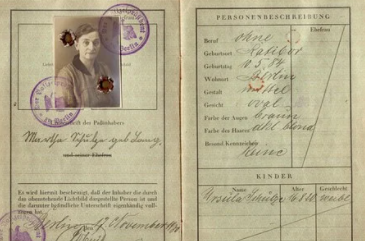 Unterschrift des Paßinhabers
Martha Schulze geb. Lang
und seiner Ehefrau
Es wird hiermit bescheinigt, daß der Inhaber die durch
das obenstehende Lichtbild dargestellte Person ist und
die darunter befindliche Unterschrift eigenhändig voll-
zogen hat.
Berlin, den November
PERSONENBESCHREIBUNG
Ehefrau
Beruf ohne
Geburtsort Ratibor
Geburtstag 10.5.84
Wohnort Berlin
Gestalt mittel
Gesicht oval
Farbe der Augen braun
Farbe des Haares dkl blond
Besond. Kennzeichen keine
KINDER
Name Alter Geschlecht
Ursula Schulze weibl